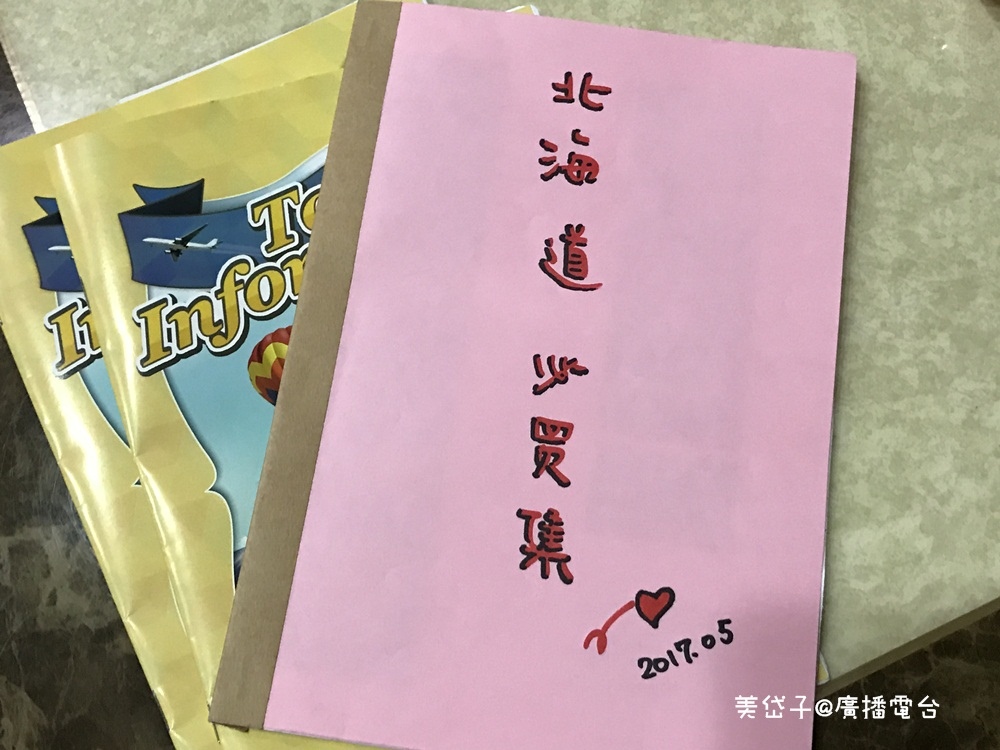 To
Infor
In
北海道必買集
2017.05
美岱子@廣播電台